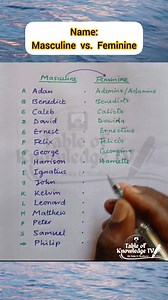 Name:
Masculine vs. Feminine
Masculine Feminine
A Adam - Admina/Adamina
B Benedict - Benedicta
C Caleb - Calista
D David - Davida
E Ernest - Ernestina
F Felix - Felicia
G George - Georgina
H Harrison - Harriette
I Ignatius
J John
K Kelvin
L Leonard
M Matthew
P Peter
S Samuel
Philip
Table of
Knowledge TV
Table of
Knowledge TV